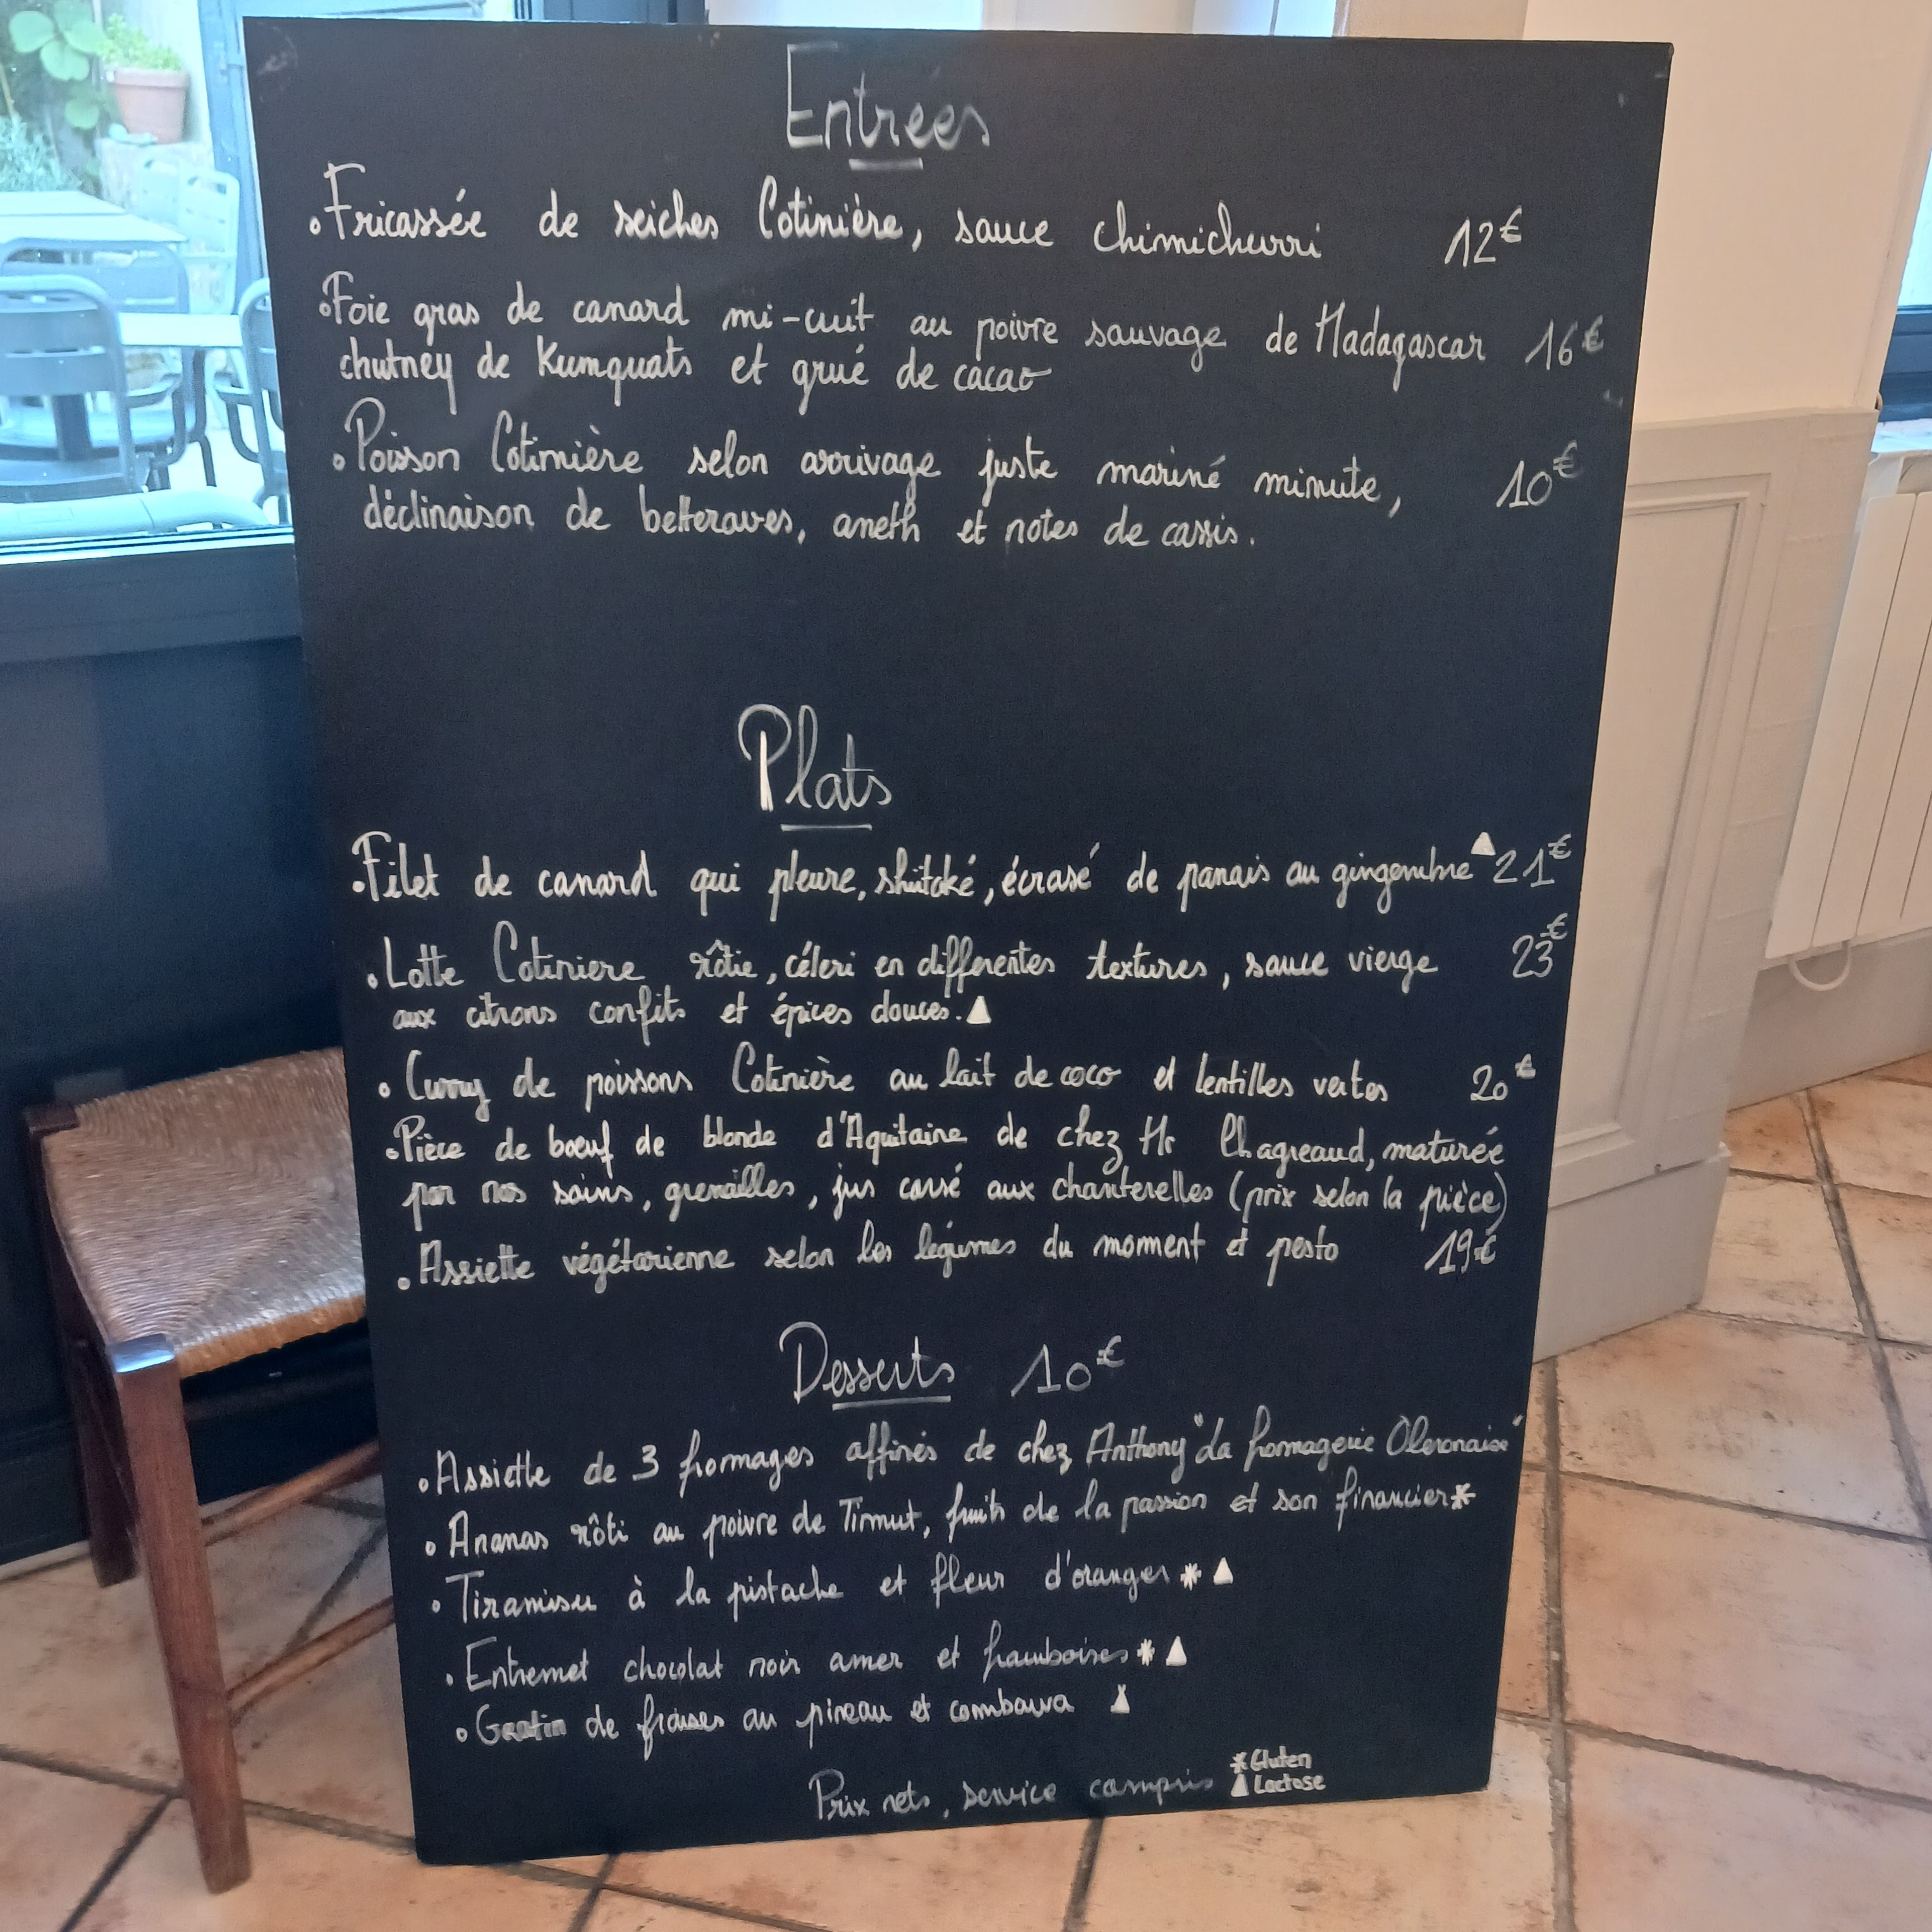 Entrees
• Fricassée de seiches Cotinière, sauce chimichurri 12€
• Foie gras de canard mi-cuit au poivre sauvage de Madagascar 16€
chutney de Kumquats et grué de cacao
• Poisson Cotinière selon arrivage juste mariné minute, 10€
déclinaison de betteraves, aneth et notes de cassis.
Plats
• Filet de canard qui pleure, shiitaké, écrasé de panais au gingembre ▲ 21€
• Lotte Cotiniere rôtie, céleri en differentes textures, sauce vierge 23€
aux citrons confits et épices douces. ▲
• Curry de poissons Cotinière au lait de coco et lentilles vertes 20€
• Pièce de boeuf de blonde d'Aquitaine de chez Mr Chagneaud, maturée
par nos soins, grenailles, jus corsé aux chanterelles (prix selon la pièce)
• Assiette végétarienne selon les légumes du moment et pesto 19€
Desserts 10€
• Assiette de 3 fromages affinés de chez Anthony "La fromagerie Oleronaise"
• Ananas rôti au poivre de Timut, fruits de la passion et son financier *
• Tiramisu à la pistache et fleur d'oranger * ▲
• Entremet chocolat noir amer et framboises * ▲
• Gratin de fraises au pineau et combawa ▲
Prix nets, service compris
* Gluten
▲ Lactose